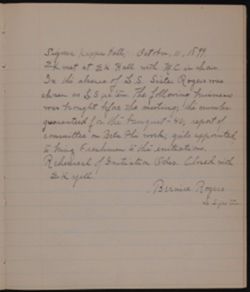 Sigma Kappa Hall, October, 11, 1899
S.K met at S.K. Hall with W.C in chair
In the absence of L.S. Sister Rogers was
chosen as L.S. pro tem. The following business
was brought before the meeting; the number
guaranteed for the banquet - 40; report of
committee on Beta Phi work; girls appointed
to bring Freshmen to the initiations.
Rehearsal of Initiation Odes. Closed with
S.K yell.
Bernice Rogers
L.S. pro tem